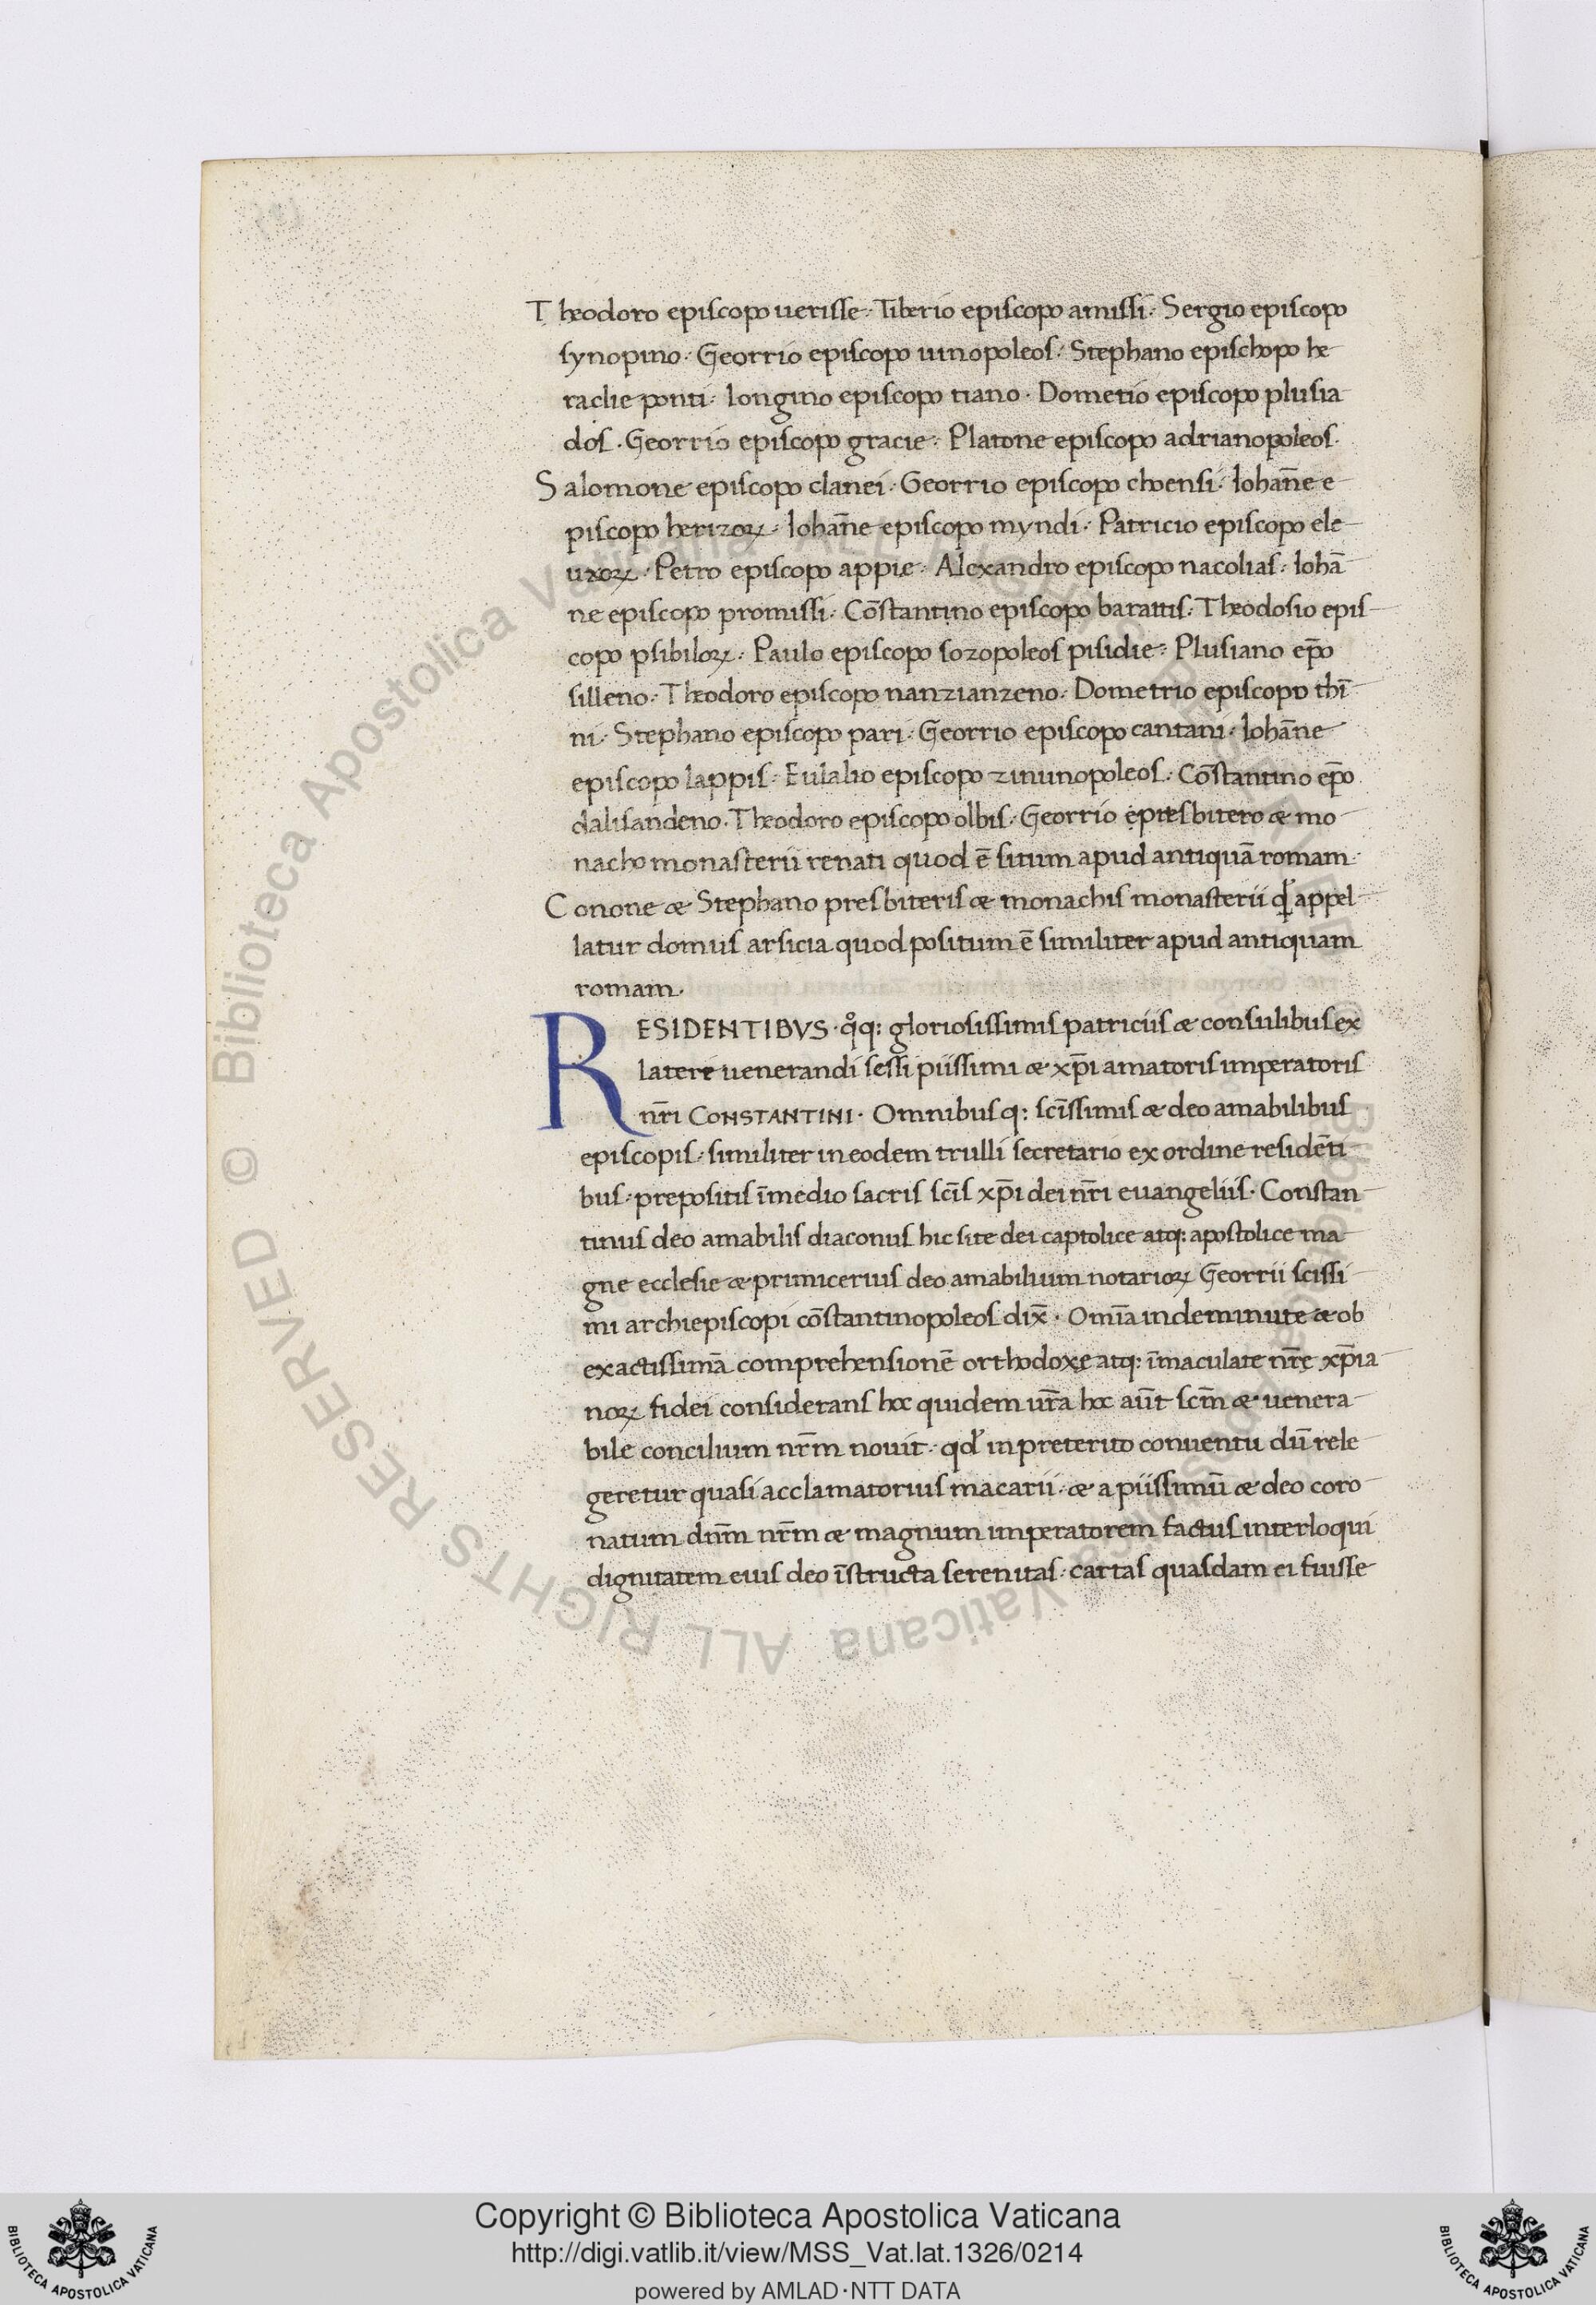 Theodoro episcopo uerisse· Tiberio episcopo amissi· Sergio episcopo
synopino· Georrio episcopo uinopoleos· Stephano epischopo he
raclie ponti· longino episcopo tiano· Dometio episcopo plusia
dos· Georrio episcopo gracie· Platone episcopo adrianopoleos·
Salomone episcopo clanei· Georrio episcopo choensi· Iohan̄e e
piscopo herizoꝝ· Iohan̄e episcopo myndi· Patricio episcopo ele
uxoꝝ· Petro episcopo appie· Alexandro episcopo nacolias· Iohā
ne episcopo promissi· Cōstantino episcopo barattis· Theodosio epis
copo psibiloꝝ· Paulo episcopo sozopoleos pisidie· Plusiano ep̄o
silleno· Theodoro episcopo nanzianzeno· Dometrio episcopo thī
ni· Stephano episcopo pari· Georrio episcopo cantani· Iohan̄e
episcopo lappis· Eulalio episcopo zinunopoleos· Cōstantino ep̄o
dalisandeno· Theodoro episcopo olbis· Georrio epresbitero æ mo
nacho monasterii renati quod ē situm apud antiquā romam·
Conone æ Stephano presbiteris æ monachis monasterii qd̛ appel
latur domus arsicia quod positum ē similiter apud antiquam
romam·
RESIDENTIBVS· qͦq: gloriosissimis patriciis æ consulibus ex
latere uenerandi sessi piissimi æ xp̄i amatoris imperatoris
nr̄i CONSTANTINI· Omnibusq: scīssimis æ deo amabilibus
episcopis· similiter in eodem trulli secretario ex ordine residēti
bus· prepositis īmedio sacris scīs xp̄i dei nr̄i euangeliis· Constan
tinus deo amabilis diaconus hic site dei captolice atq: apostolice ma
gne ecclesie æ primicerius deo amabilium notarioꝝ Georrii scissi
mi archiepiscopi cōstantinopoleos dix̄· Omīa indeminute æ ob
exactissimā comprehensionē orthodoxę atq: īmaculate nr̄ę xp̄ia
noꝝ fidei considerans hoc quidem ur̄a hoc aūt scm̄ æ uenera
bile concilium nr̄m nouit· qd̛ in preterito conuentu dū rele
geretur quasi acclamatorius macarii· æ a piissimū æ deo coro
natum dnm̄ nr̄m æ magnum imperatorem factus interloqui
dignitatem eius deo īstructa serenitas· cartas quasdam ei fuisse
Copyright © Biblioteca Apostolica Vaticana
http://digi.vatlib.it/view/MSS_Vat.lat.1326/0214
powered by AMLAD·NTT DATA